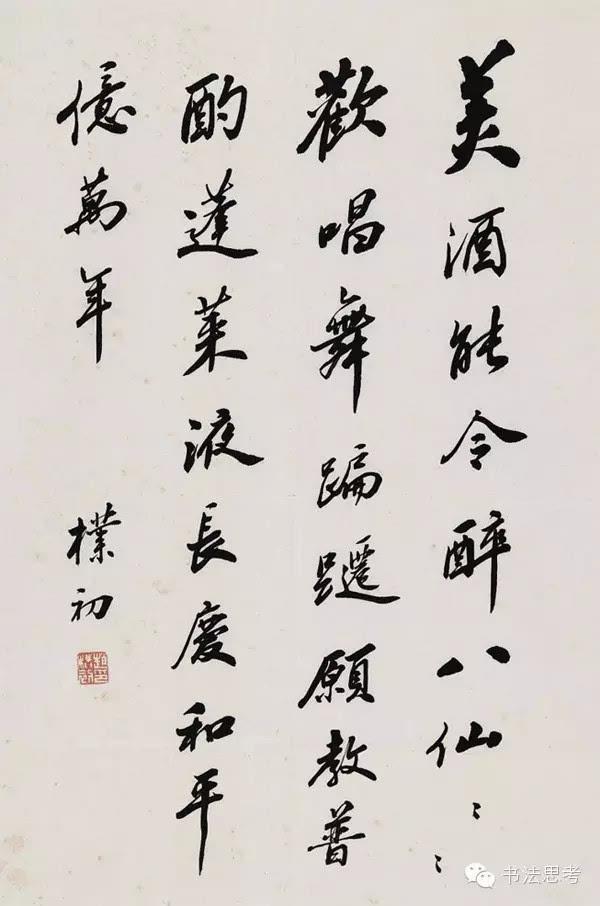 美酒能令醉八仙〻〻
歡唱舞蹁躚願教普
酌蓬萊液長慶和平
億萬年
樸初
书法思考